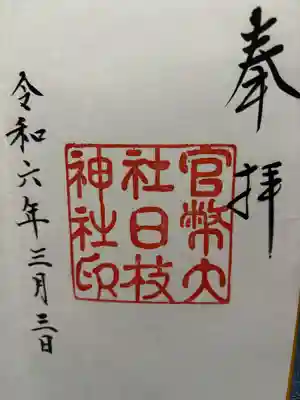 奉拝
官幣大
社日枝
神社印
令和六年三月三日